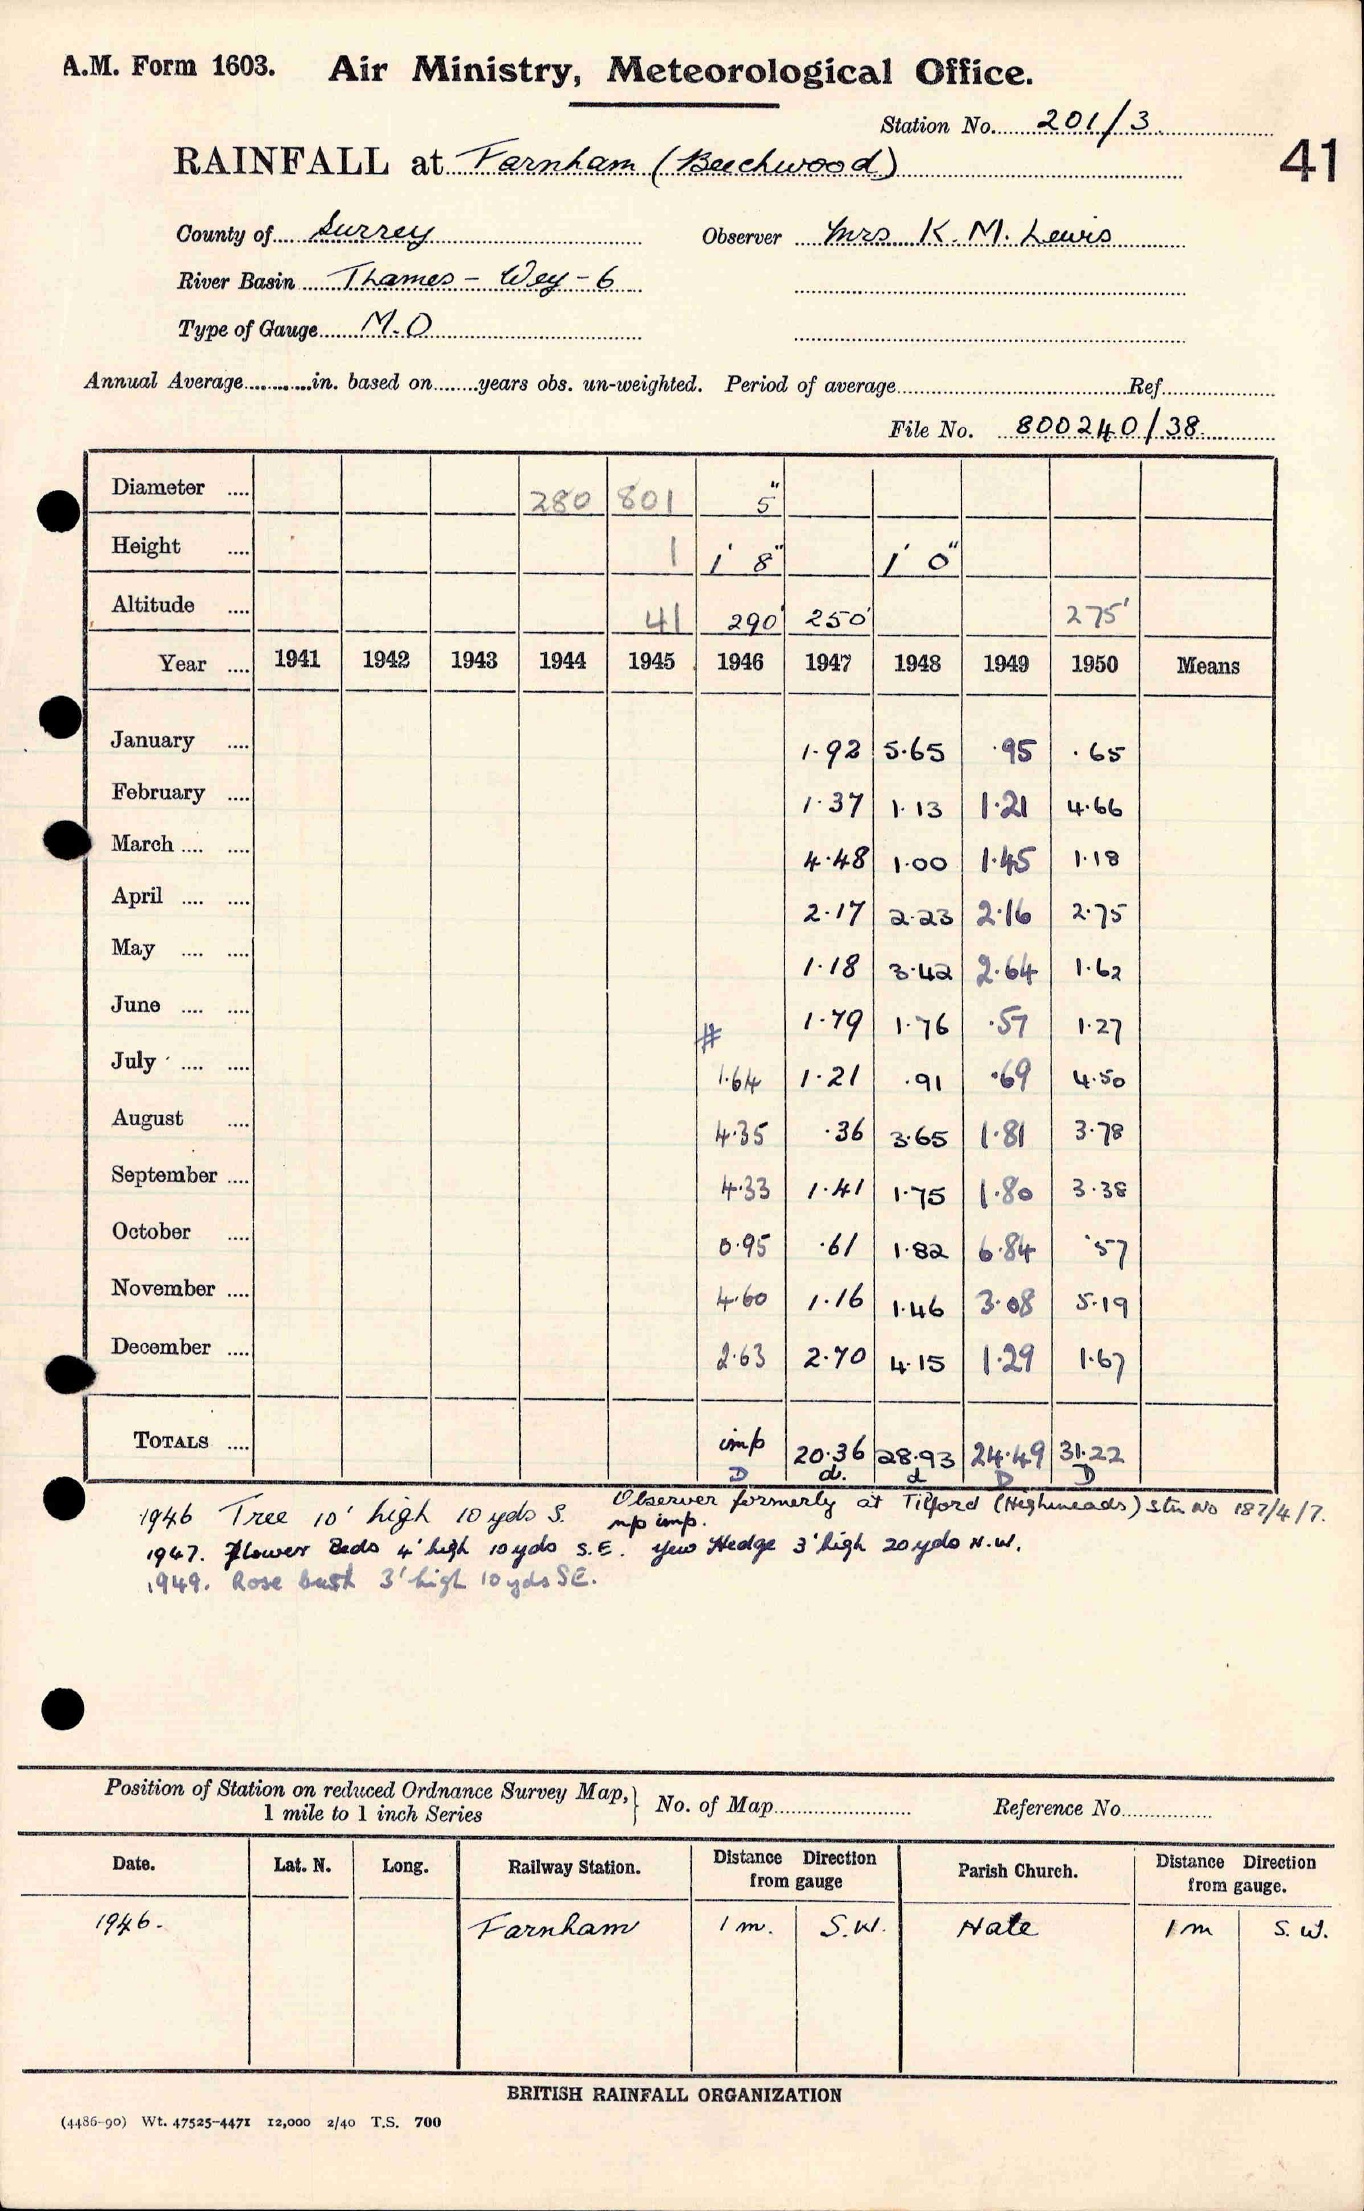 A.M. Form 1603. Air Ministry, Meteorological Office.
Station No. 201/3
41
RAINFALL at Farnham (Beechwood)
County of Surrey Observer Mrs K. M. Lewis
River Basin Thames - Wey - 6
Type of Gauge M.O
Annual Average in. based on years obs. un-weighted. Period of average Ref
File No. 800240/38
Diameter 280 801 5"
Height 1 1' 8" 1' 0"
Altitude 41 290' 250' 275'
Year 1941 1942 1943 1944 1945 1946 1947 1948 1949 1950 Means
January 1.92 5.65 .95 .65
February 1.37 1.13 1.21 4.66
March 4.48 1.00 1.45 1.18
April 2.17 2.23 2.16 2.75
May 1.18 3.42 2.64 1.62
June # 1.79 1.76 .57 1.27
July 1.64 1.21 .91 .69 4.50
August 4.35 .36 3.65 1.81 3.78
September 4.33 1.41 1.75 1.80 3.38
October 0.95 .61 1.82 6.84 .57
November 4.60 1.16 1.46 3.08 5.19
December 2.63 2.70 4.15 1.29 1.67
TOTALS imp 20.36 28.93 24.49 31.22
D d. d D D
1946 Tree 10' high 10 yds S. Observer formerly at Tilford (Highmeads) Stn No 187/4/7.
np imp.
1947. Flower Beds 4' high 10 yds S.E. Yew Hedge 3' high 20 yds N.W.
1949. Rose bush 3' high 10 yds SE.
Position of Station on reduced Ordnance Survey Map,
1 mile to 1 inch Series } No. of Map Reference No
Date. Lat. N. Long. Railway Station. Distance Direction from gauge Parish Church. Distance Direction from gauge.
1946. Farnham 1 m. S.W. Hale 1 m S.W.
BRITISH RAINFALL ORGANIZATION
(4486-90) Wt. 47525-4471 12,000 2/40 T.S. 700